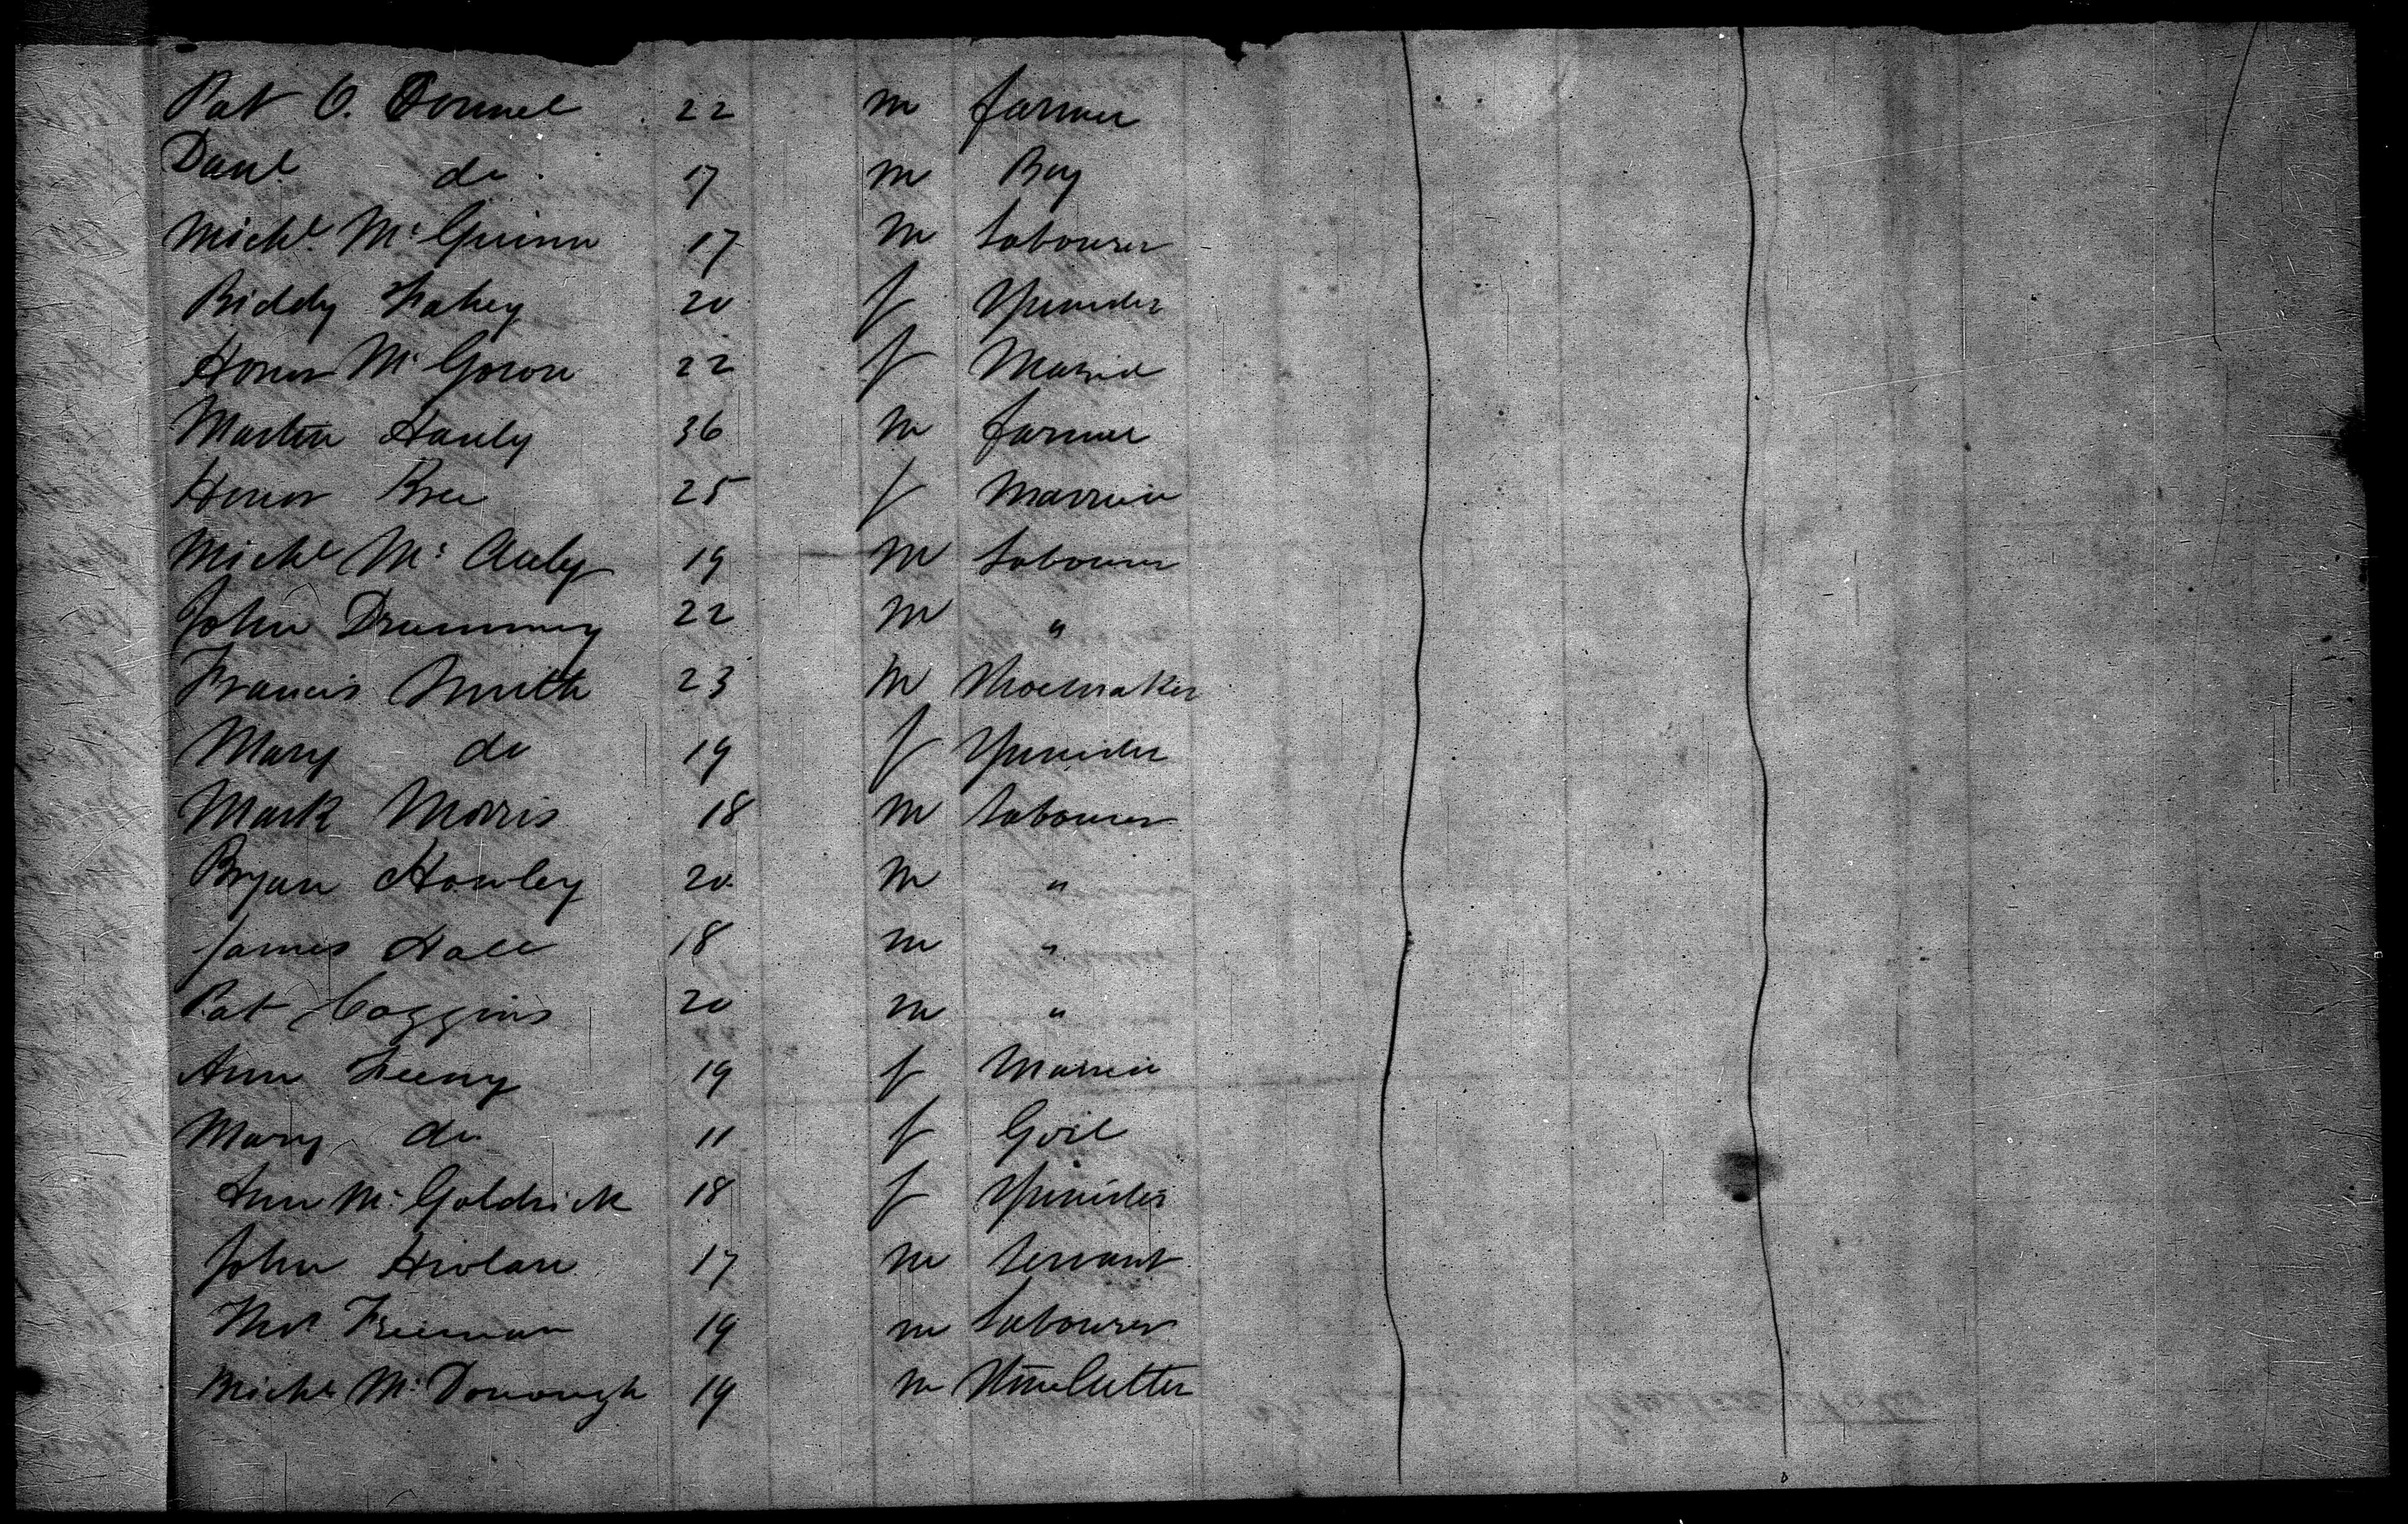 Pat O. Donnel 22 m farmer
Danl do 17 m Boy
Michl McGuinn 17 m Labourer
Biddy Fahey 20 f Spinster
Honor McGowan 22 f Married
Martin Hauly 36 m farmer
Honor Bree 25 f Married
Michl McAuly 19 m Labourer
John Drummy 22 m "
Francis Smith 23 m Shoemaker
Mary do 19 f Spinster
Mark Morris 18 m Labourer
Bryan Howley 20 m "
James Hall 18 m "
Pat Coggins 20 m "
Ann Feeny 19 f Married
Mary do 11 f Girl
Ann McGoldrick 18 f Spinster
John 17 m Servant
Thos Freeman 19 m Labourer
Michl McDonough 19 m Stone Cutter